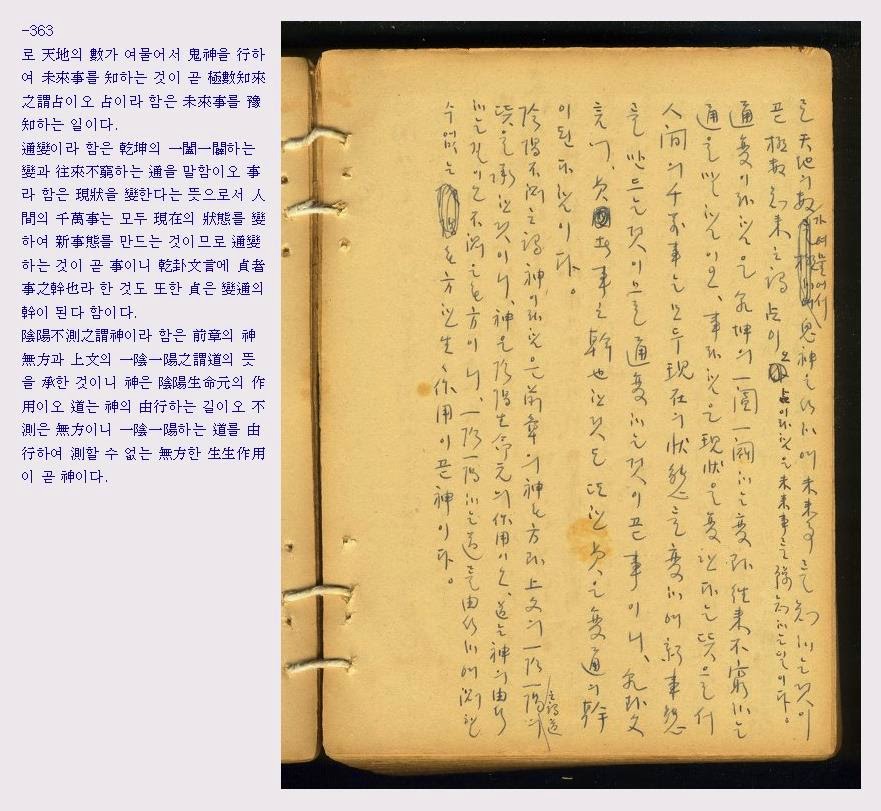 -363
로 天地의 數가 여물어서 鬼神을 行하
여 未來事를 知하는 것이 곧 極數知來
之謂占이오 占이라 함은 未來事를 豫
知하는 일이다.
通變이라 함은 乾坤의 一闔一闢하는
變과 往來不窮하는 通을 말함이오 事
라 함은 現狀을 變한다는 뜻으로서 人
間의 千萬事는 모두 現在의 狀態를 變
하여 新事態를 만드는 것이므로 通變
하는 것이 곧 事이니 乾卦文言에 貞者
事之幹也라 한 것도 또한 貞은 變通의
幹이 된다 함이다.
陰陽不測之謂神이라 함은 前章의 神
無方과 上文의 一陰一陽之謂道의 뜻
을 承한 것이니 神은 陰陽生命元의 作
用이오 道는 神의 由行하는 길이오 不
測은 無方이니 一陰一陽하는 道를 由
行하여 測할 수 없는 無方한 生生作用
이 곧 神이다.
로 天地의 數가 여물어서 鬼神을 行하여 未來事를 知하는 것이
곧 極數知來之謂占이오 占이라 함은 未來事를 豫知하는 일이다。
通變이라 함은 乾坤의 一闔一闢하는 變과 往來不窮하는
通을 말함이오、事라 함은 現狀을 變한다는 뜻으로서
人間의 千万事는 모두 現在의 狀態를 變하여 新事態
를 만드는 것이므로 通變하는 것이 곧 事이니、乾卦文
言에、貞者事之幹也라 한 것도 또한 貞은 變通의 幹
이 된다 함이다。
陰陽不測之謂神이라 함은 前章의 神无方과 上文의 一陰一陽之謂道의
뜻을 承한 것이니、神은 陰陽生命元의 作用이오、道는 神의 由行
하는 길이오 不測은 无方이니、一陰一陽하는 道를 由行하여 測할
수 없는 无方한 生生作用이 곧 神이다。